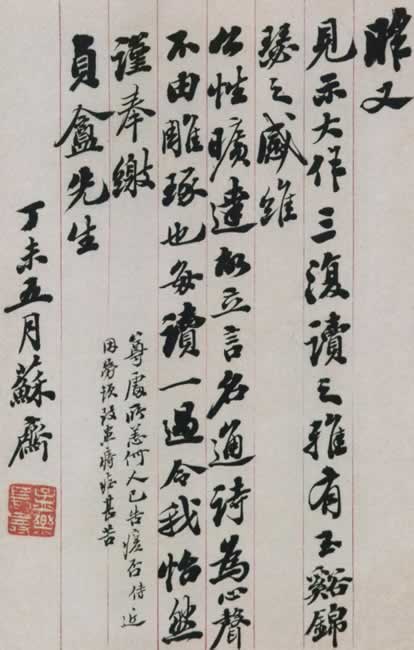 昨又
見示大作三復讀之雅有玉谿錦
瑟之感維
公性曠達故立言名通詩為心聲
不由雕琢也每讀一過令我怡然
謹奉繳
貞盦先生
尊處所恙何人已告痊否侍近
因勞頓致患痔症甚苦
丁未五月蘇齋